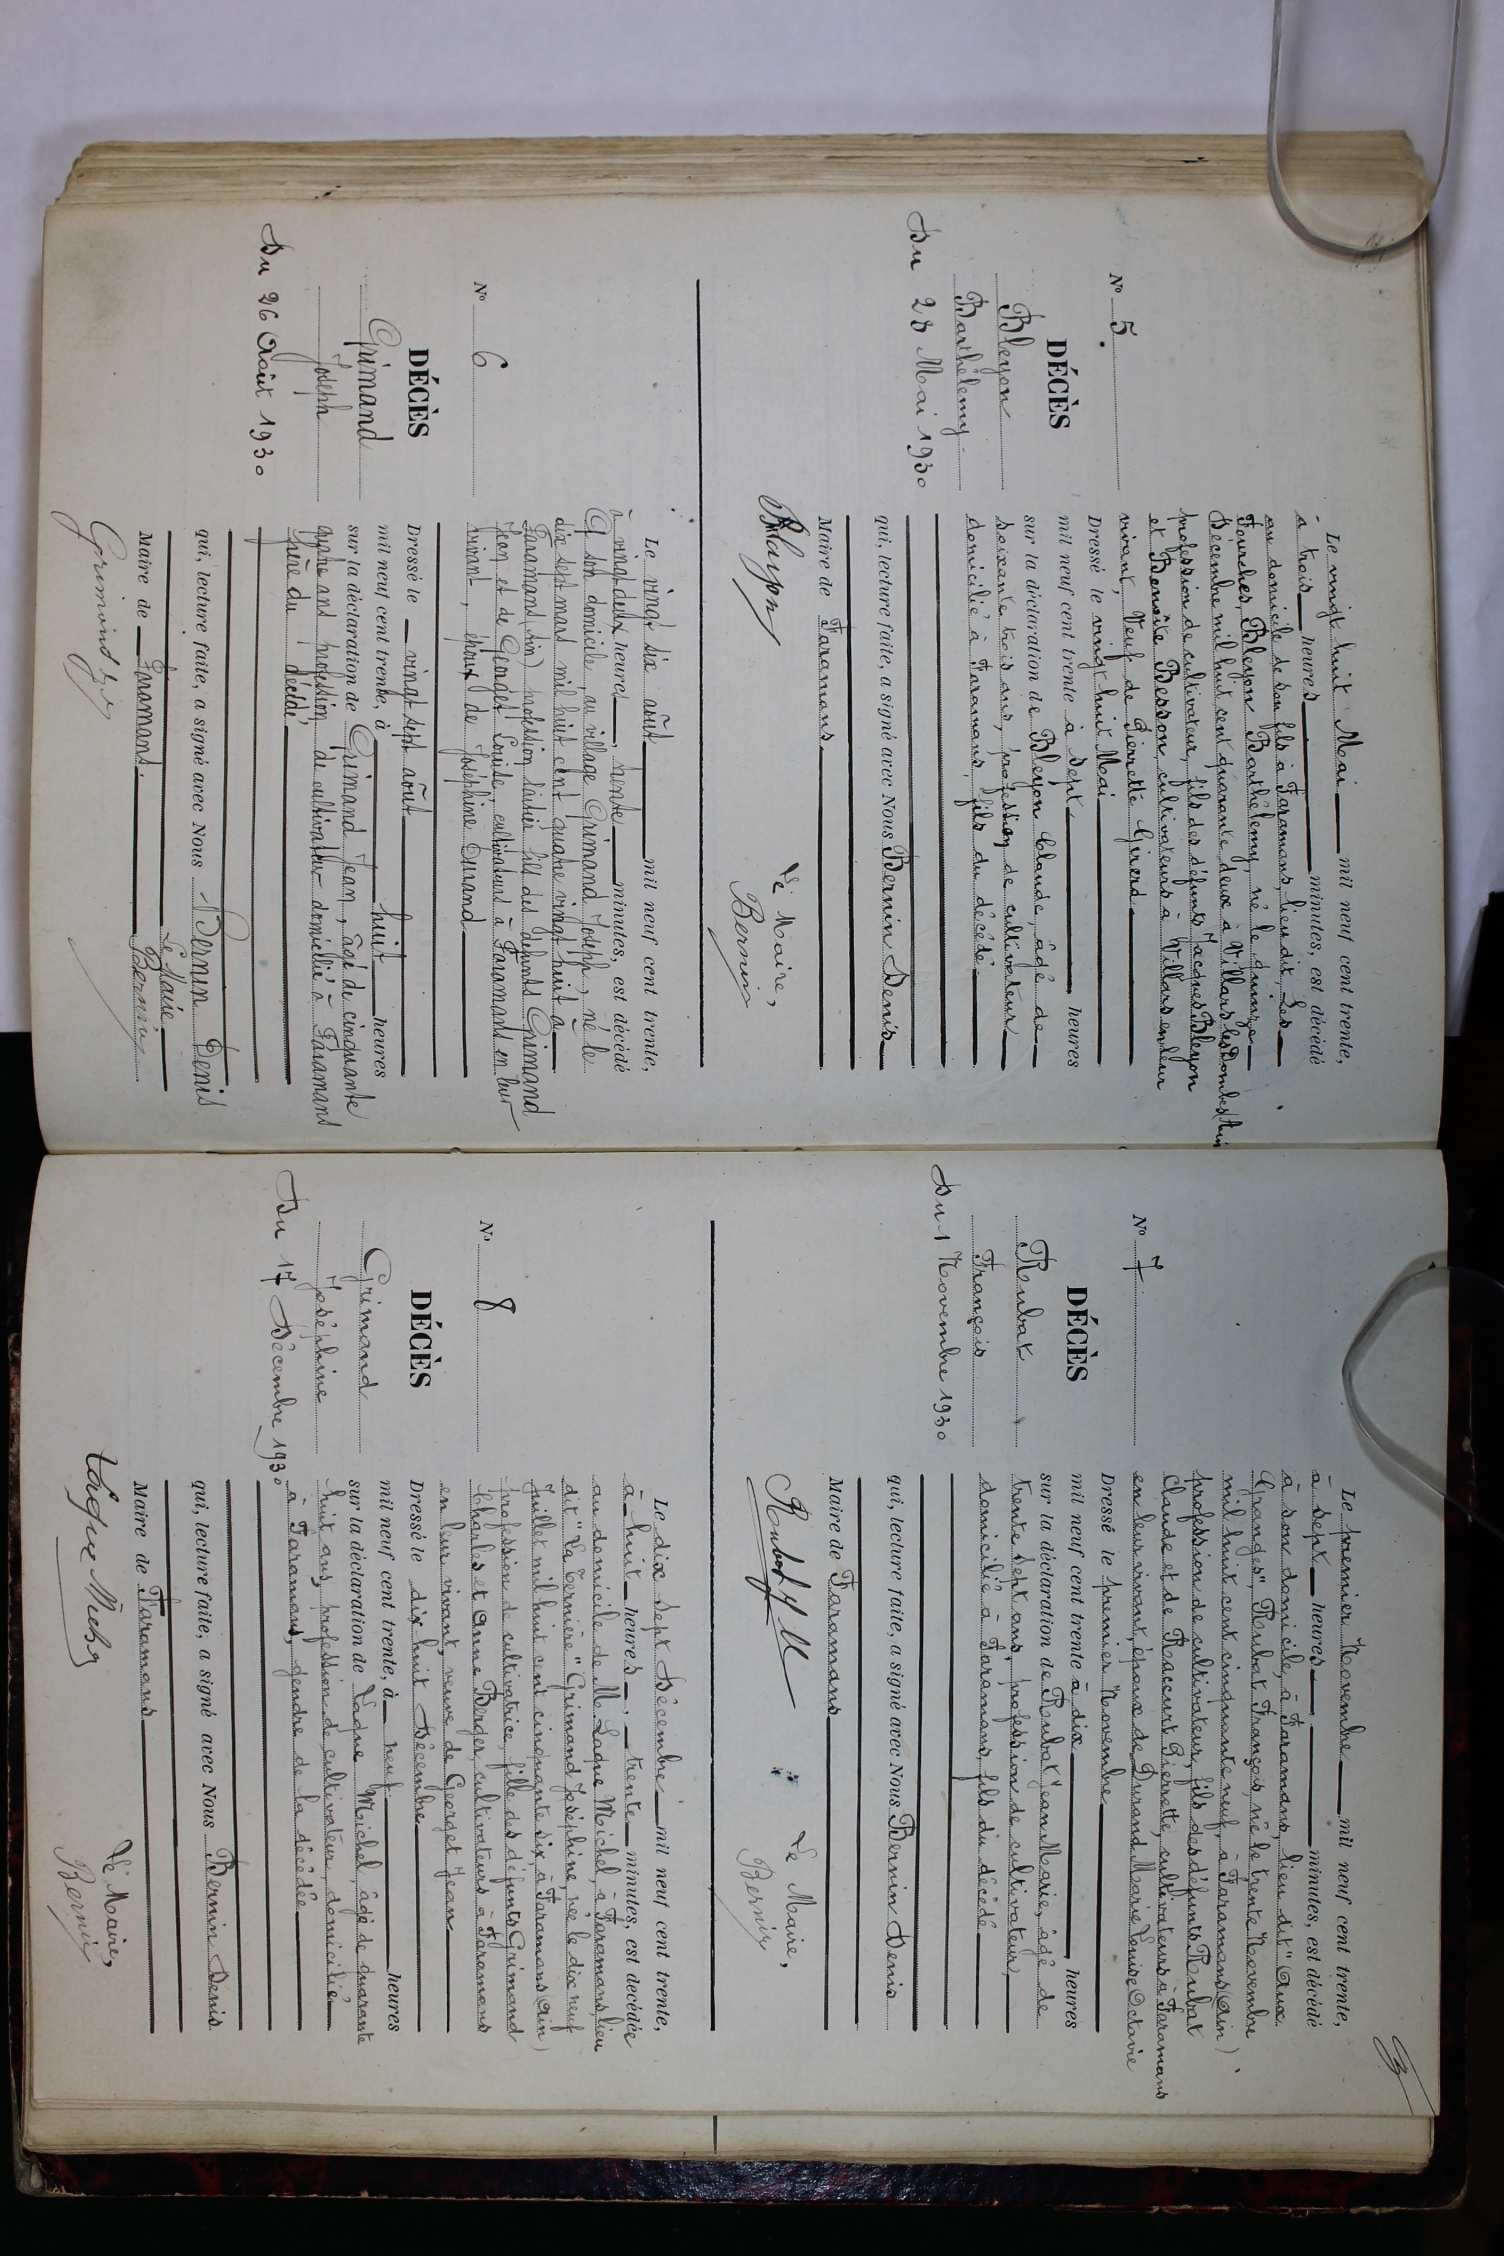 N° 5
DÉCÈS
Bleyon
Barthélemy
Du 28 Mai 1930
Le vingt huit Mai mil neuf cent trente,
à trois heures minutes, est décédé
au domicile de son fils à Faramans, lieu dit, Les
Fourches, Bleyon Barthélemy, né le quinze
Décembre mil huit cent quarante deux à Villars les Dombes (Ain
profession de cultivateur, fils des défunts Jacques Bleyon
et Benoîte Besson, cultivateurs à Villars en leur
vivant, Veuf de Pierrette Girerd
Dressé le vingt huit Mai
mil neuf cent trente à sept heures
sur la déclaration de Bleyon Claude, âgé de
soixante trois ans, profession de cultivateur
domicilié à Faramans, fils du décédé
qui, lecture faite, a signé avec Nous Bernin Denis
Maire de Faramans
Blayon
Le Maire,
Bernin
N° 6
DÉCÈS
Grimand
Joseph
Du 26 Août 1930
Le vingt six août mil neuf cent trente,
à vingt deux heures, trente minutes, est décédé
en son domicile, au village Grimand Joseph, né le
dix sept mars mil huit cent quatre vingt huit à
Faramans (Ain) profession laitier fils des defunts Grimand
Jean et de Georget Louise, cultivateurs à Faramans en leur
vivant, époux de Joséphine Durand
Dressé le vingt sept août
mil neuf cent trente, à huit heures
sur la déclaration de Grimand Jean, âgé de cinquante
quatre ans profession de cultivateur domicilié à Faramans
frère du décédé
qui, lecture faite, a signé avec Nous Bernin Denis
Maire de Faramans.
Le Maire
Grimand
Bernin
N° 7
DÉCÈS
Rubat
François
Du 1 Novembre 1930
Le premier Novembre mil neuf cent trente,
à sept heures minutes, est décédé
à son domicile, à Faramans, lieu dit "Aux
Granges", Rubat François, né le trente Novembre
mil huit cent cinquante neuf, à Faramans (Ain)
profession de cultivateur, fils des défunts Rubat
Claude et de Raccurt Pierrette, cultivateurs à Faramans
en leur vivant, époux de Durand Marie Louise Octavie
Dressé le premier Novembre
mil neuf cent trente à dix heures
sur la déclaration de Rubat Jean Marie, âgé de
trente sept ans, profession de cultivateur,
domicilié à Faramans, fils du décédé
qui, lecture faite, a signé avec Nous Bernin Denis
Maire de Faramans
Rubat J M
Le Maire,
Bernin
N° 8
DÉCÈS
Grimand
Joséphine
Du 17 Décembre 1930
Le dix sept Décembre mil neuf cent trente,
à huit heures, trente minutes, est décédée
au domicile de M. Laque Michel, à Faramans, lieu
dit "La Ternière" Grimand Joséphine, née le dix neuf
Juillet mil huit cent cinquante dix, à Faramans (Ain)
profession de cultivatrice, fille des défunts Grimand
Charles et Anne Berger, cultivateurs à Faramans
en leur vivant, veuve de Georget Jean
Dressé le dix huit Décembre
mil neuf cent trente, à neuf heures
sur la déclaration de Laque Michel, âgé de quarante
huit ans, profession de cultivateur, domicilié
à Faramans, gendre de la décédée
qui, lecture faite, a signé avec Nous Bernin Denis
Maire de Faramans
Le Maire,
Bernin